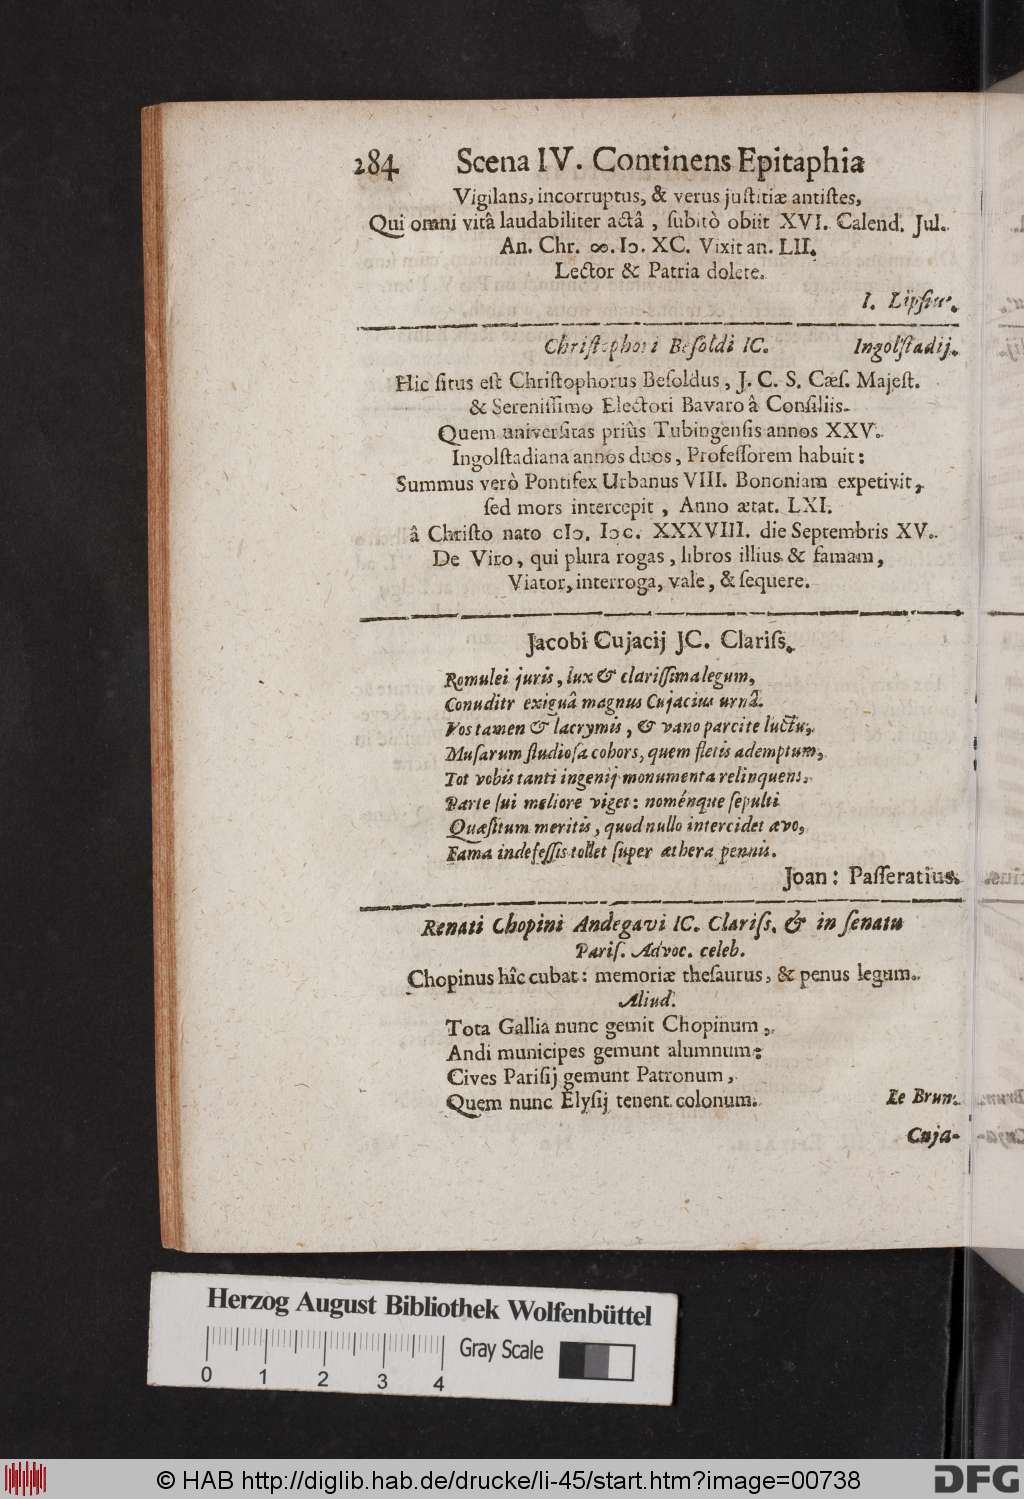 284 Scena IV. Continens Epitaphia
Vigilans, incorruptus, & verus justitiæ antistes,
Qui omni vitâ laudabiliter actâ, subitò obiit XVI. Calend. Jul.
An. Chr. ∞. Iↄ. XC. Vixit an. LII.
Lector & Patria dolete.
I. Lipsius.
Christophori Besoldi IC. Ingolstadij.
Hic situs est Christophorus Besoldus, J. C. S. Cæs. Majest.
& Serenissimo Electori Bavaro â Consiliis.
Quem universitas priùs Tubingensis annos XXV.
Ingolstadiana annos duos, Professorem habuit:
Summus verò Pontifex Urbanus VIII. Bononiam expetivit,
sed mors intercepit, Anno ætat. LXI.
â Christo nato cIↄ. Iↄc. XXXVIII. die Septembris XV.
De Viro, qui plura rogas, libros illius & famam,
Viator, interroga, vale, & sequere.
Jacobi Cujacij JC. Clariss.
Romulei juris, lux & clarissima legum,
Conuditr exiguâ magnus Cujacius urnâ.
Vos tamen & lacrymis, & vano parcite luctu,
Musarum studiosa cohors, quem fletis ademptum,
Tot vobis tanti ingenij monumenta relinquens,
Parte sui meliore viget: noménque sepulti
Quæsitum meritis, quod nullo intercidet ævo,
Fama indefessis tollet super æthera pennis.
Joan: Passeratius.
Renati Chopini Andegavi IC. Clariss. & in senatu
Paris. Advoc. celeb.
Chopinus hîc cubat: memoriæ thesaurus, & penus legum.
Aliud.
Tota Gallia nunc gemit Chopinum,
Andi municipes gemunt alumnum:
Cives Parisij gemunt Patronum,
Quem nunc Elysij tenent colonum. Le Brun.
Cuja-
Herzog August Bibliothek Wolfenbüttel
Gray Scale
0 1 2 3 4
© HAB http://diglib.hab.de/drucke/li-45/start.htm?image=00738
DFG